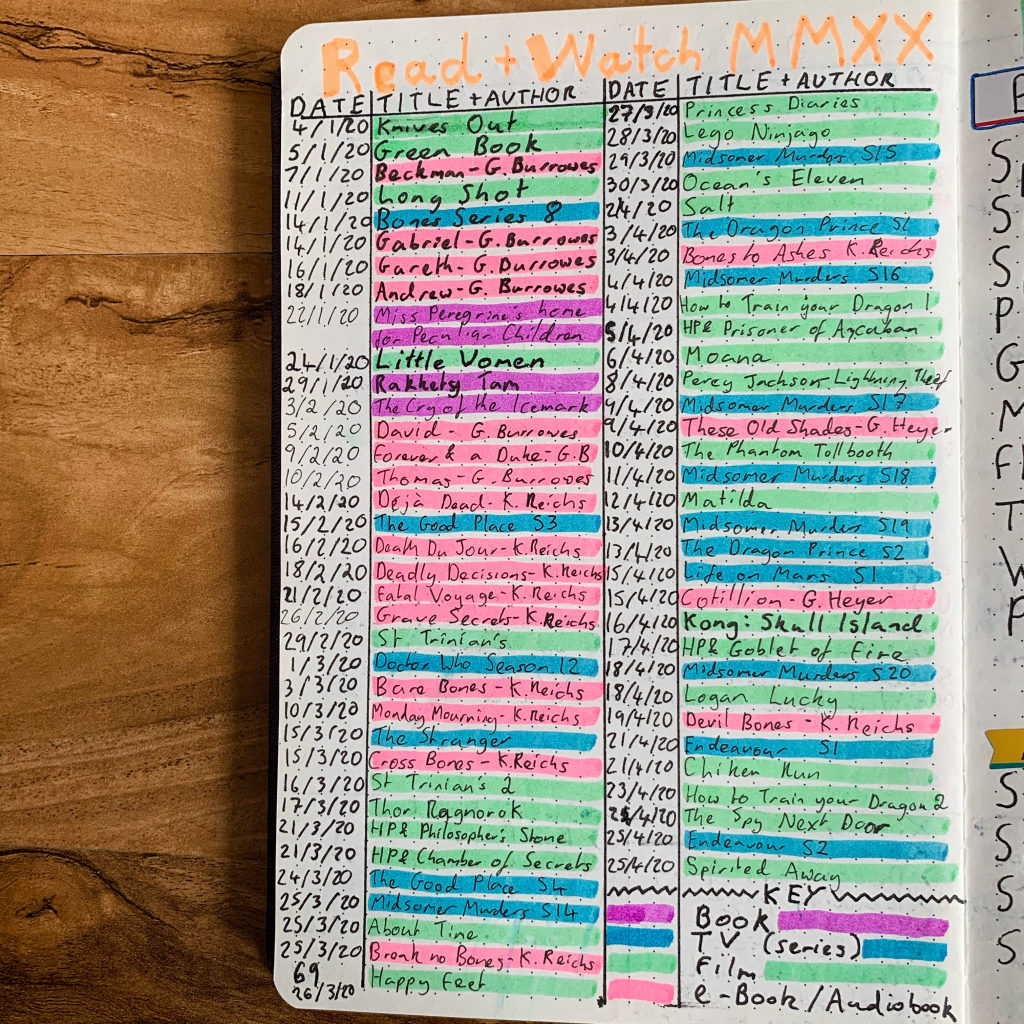 Read + Watch MMXX
DATE TITLE + AUTHOR
4/1/20 Knives Out
5/1/20 Green Book
7/1/20 Beckman - G. Burrowes
11/1/20 Long Shot
14/1/20 Bones Series 8
14/1/20 Gabriel - G. Burrowes
16/1/20 Gareth - G. Burrowes
18/1/20 Andrew - G. Burrowes
22/1/20 Miss Peregrine's home
for Peculiar Children
24/1/20 Little Women
29/1/20 Rakkety Tam
3/2/20 The Cry of the Icemark
5/2/20 David - G. Burrowes
9/2/20 Forever & a Duke - G.B
10/2/20 Thomas - G. Burrowes
14/2/20 Déjà Dead - K. Reichs
15/2/20 The Good Place S3
16/2/20 Death Du Jour - K. Reichs
18/2/20 Deadly Decisions - K. Reichs
21/2/20 Fatal Voyage - K. Reichs
26/2/20 Grave Secrets - K. Reichs
29/2/20 St Trinian's
1/3/20 Doctor Who Season 12
3/3/20 Bare Bones - K. Reichs
10/3/20 Monday Mourning - K. Reichs
15/3/20 The Stranger
15/3/20 Cross Bones - K. Reichs
16/3/20 St Trinian's 2
17/3/20 Thor Ragnorok
21/3/20 HP& Philosopher's Stone
21/3/20 HP& Chamber of Secrets
24/3/20 The Good Place S4
25/3/20 Midsomer Murders S14
25/3/20 About Time
25/3/20 Break no Bones - K. Reichs
69
26/3/20 Happy Feet
DATE TITLE + AUTHOR
27/3/20 Princess Diaries
28/3/20 Lego Ninjago
29/3/20 Midsomer Murders S15
30/3/20 Ocean's Eleven
2/4/20 Salt
3/4/20 The Dragon Prince S1
3/4/20 Bones to Ashes K. Reichs
4/4/20 Midsomer Murders S16
4/4/20 How to Train your Dragon 1
5/4/20 HP& Prisoner of Azcaban
6/4/20 Moana
8/4/20 Percy Jackson Lightning Theif
9/4/20 Midsomer Murders S17
9/4/20 These Old Shades - G. Heyer
10/4/20 The Phantom Tollbooth
11/4/20 Midsomer Murders S18
12/4/20 Matilda
13/4/20 Midsomer Murders S19
13/4/20 The Dragon Prince S2
15/4/20 Life on Mars S1
15/4/20 Cotillion - G. Heyer
16/4/20 Kong: Skull Island
17/4/20 HP& Goblet of Fire
18/4/20 Midsomer Murders S20
18/4/20 Logan Lucky
19/4/20 Devil Bones - K. Reichs
21/4/20 Endeavour S1
21/4/20 Chiken Run
23/4/20 How to Train your Dragon 2
25/4/20 The Spy Next Door
25/4/20 Endeavour S2
25/4/20 Spirited Away
KEY
Book
TV (series)
Film
e-Book/Audiobook